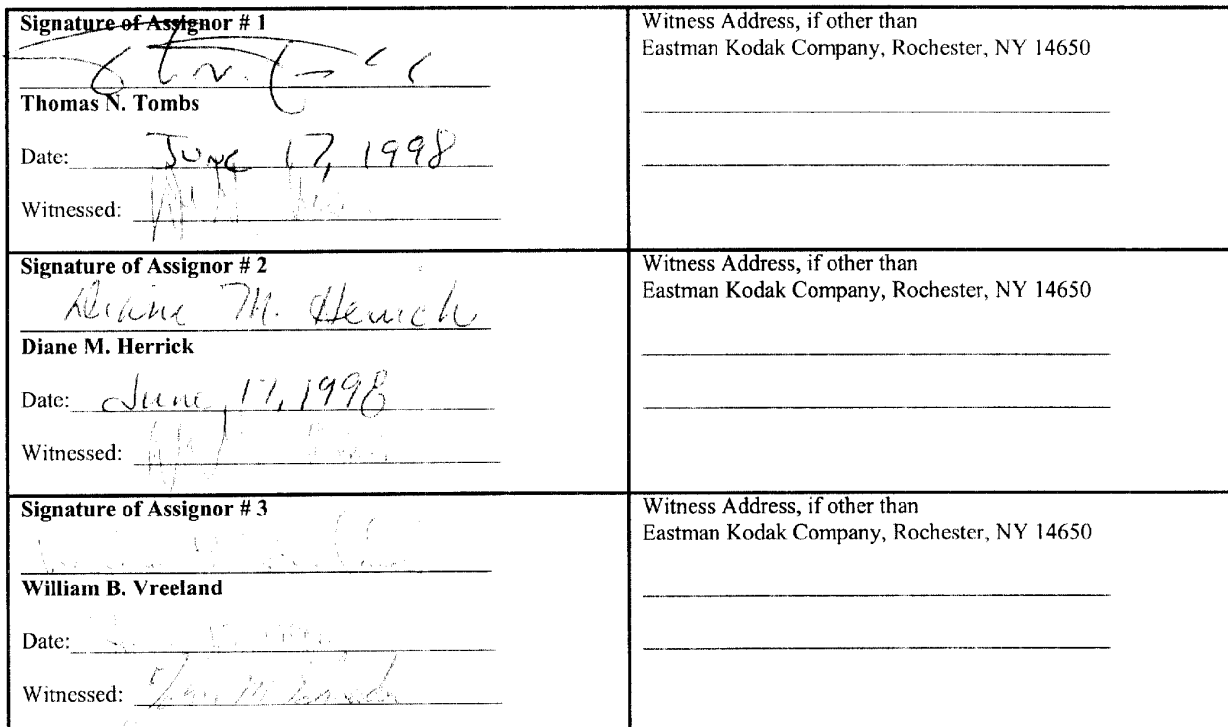 Signature of Assignor # 1
Thomas N. Tombs
Date: June 17, 1998
Witnessed:
Witness Address, if other than
Eastman Kodak Company, Rochester, NY 14650
Signature of Assignor # 2
Diane M. Herrick
Diane M. Herrick
Date: June, 17, 1998
Witnessed:
Witness Address, if other than
Eastman Kodak Company, Rochester, NY 14650
Signature of Assignor # 3
William B. Vreeland
Date:
Witnessed:
Witness Address, if other than
Eastman Kodak Company, Rochester, NY 14650